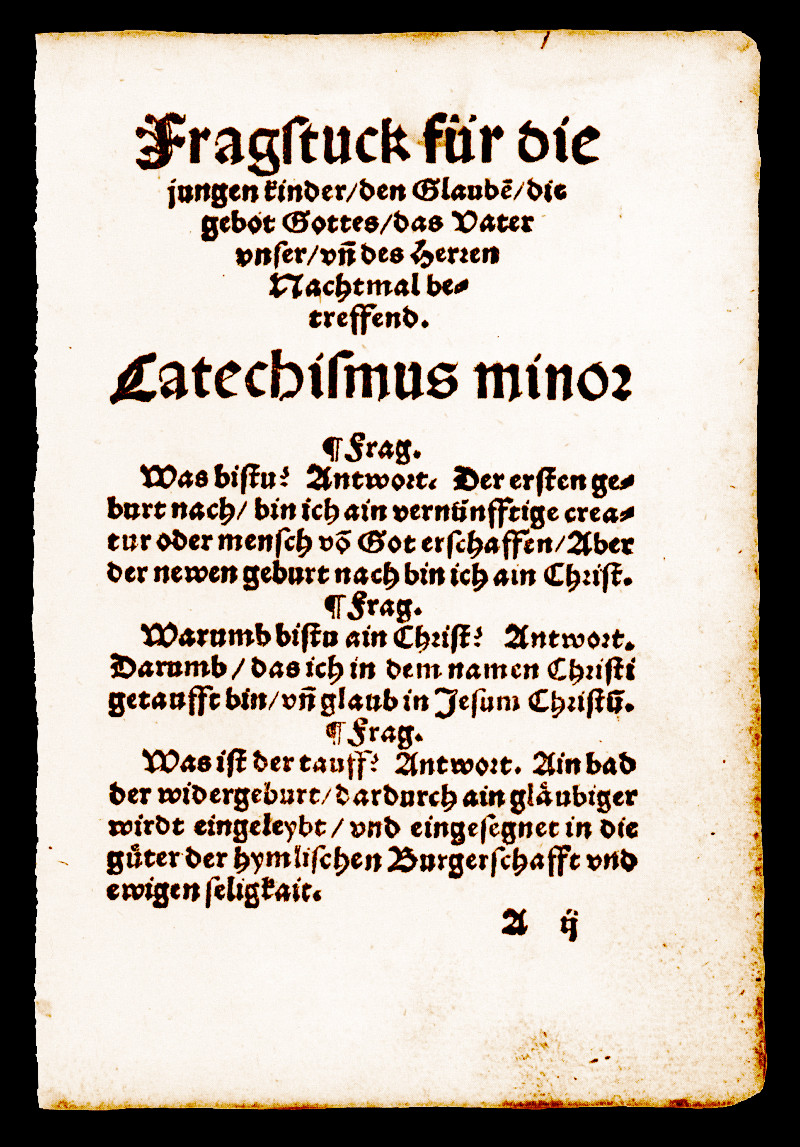 Fragstuck für die
jungen kinder/den Glaubē/die
gebot Gottes/das Vater
vnser/vn̄ des Herren
Nachtmal be⸗
treffend.
Catechismus minor
¶ Frag.
Was bistu? Antwort. Der ersten ge⸗
burt nach/ bin ich ain vernünfftige crea⸗
tur oder mensch vō Got erschaffen/Aber
der newen geburt nach bin ich ain Christ.
¶ Frag.
Warumb bistu ain Christ? Antwort.
Darumb / das ich in dem namen Christi
getaufft bin/vn̄ glaub in Jesum Christū.
¶ Frag.
Was ist der tauff? Antwort. Ain bad
der widergeburt/dardurch ain glaͤubiger
wirdt eingeleybt / vnd eingesegnet in die
guͤter der hymlischen Burgerschafft vnd
ewigen seligkait.
A ij